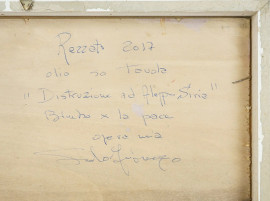 Rezzato 2017
olio su Tavola
"Distruzione ad Aleppo Siria"
x la pace
opera mia